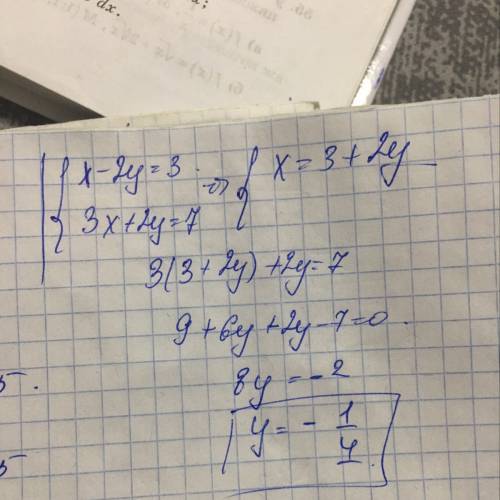 dx.
{ x-2y=3 ⇒ { x=3+2y
{ 3x+2y=7
3(3+2y)+2y=7
9+6y+2y-7=0.
8y=-2
y=-1/4
5.
5